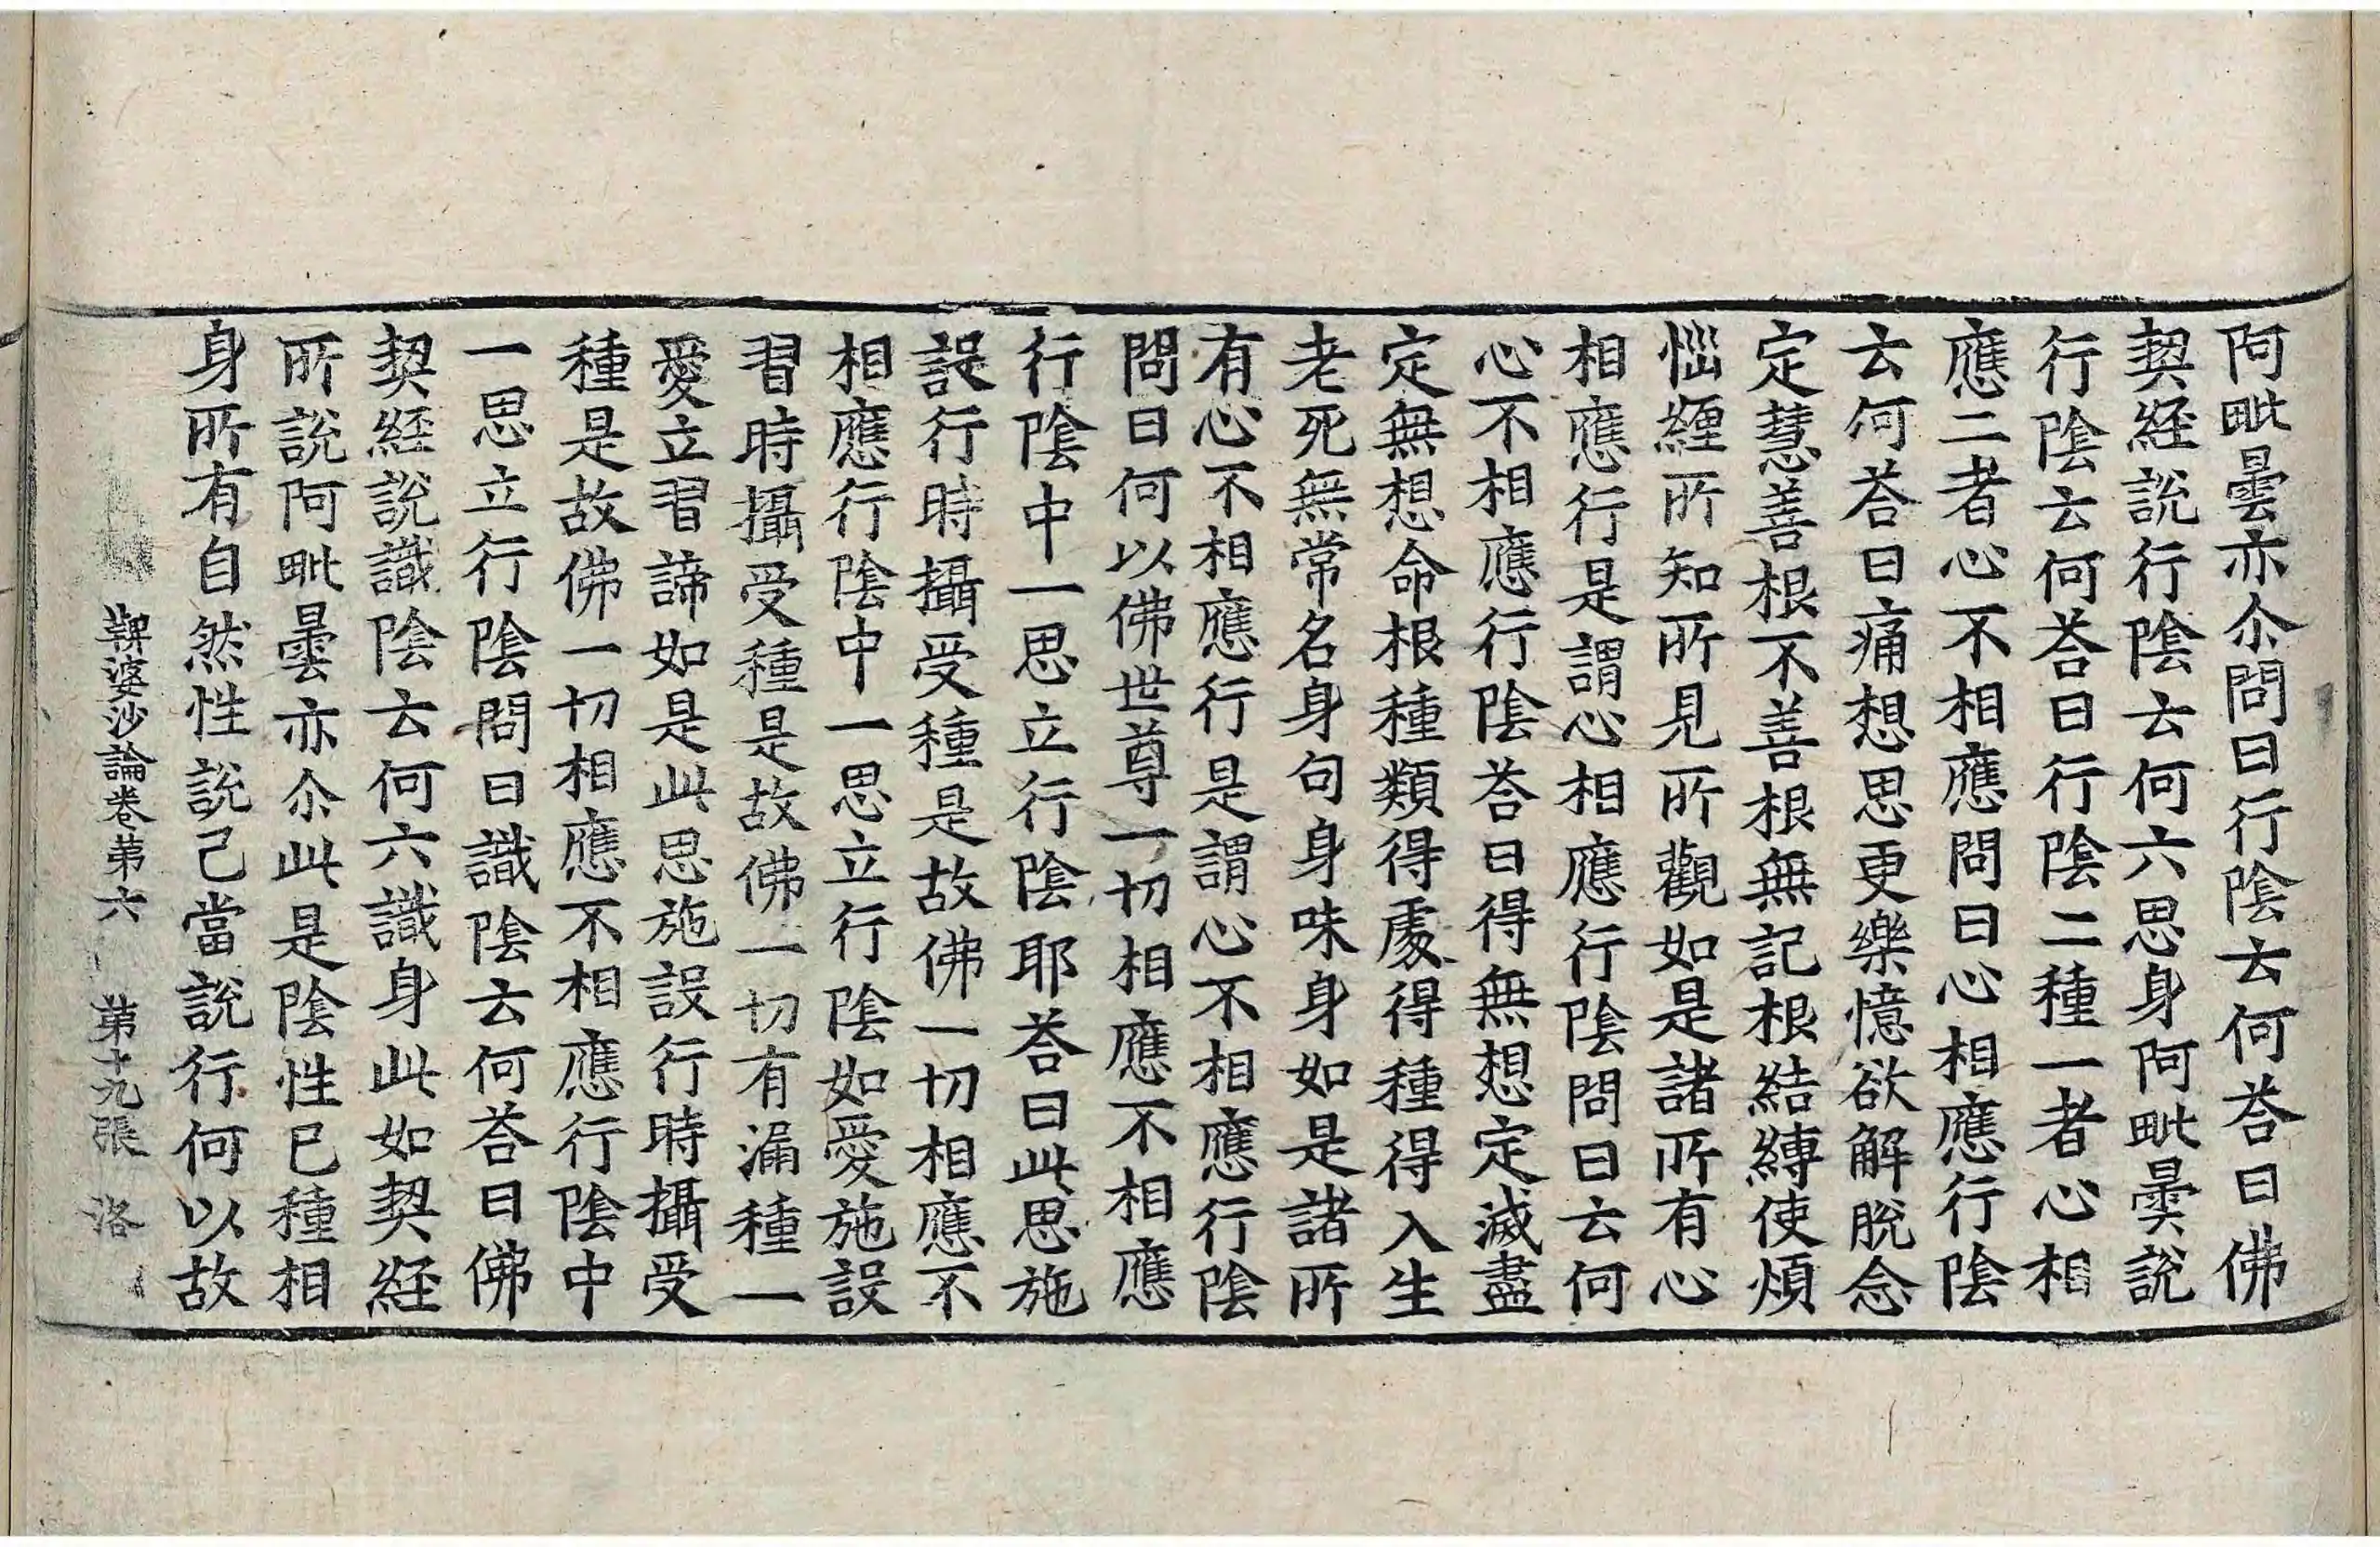 阿毗曇亦尒問曰行陰云何荅曰佛
契經說行陰云何六思身阿毗曇說
行陰云何荅曰行陰二種一者心相
應二者心不相應問曰心相應行陰
云何荅曰痛想思更樂憶欲解脫念
定慧善根不善根無記根結縛使煩
惱纏所知所見所觀如是諸所有心
相應行是謂心相應行陰問曰云何
心不相應行陰荅曰得無想定滅盡
定無想命根種類得處得種得入生
老死無常名身句身味身如是諸所
有心不相應行是謂心不相應行陰
問曰何以佛世尊一切相應不相應
行陰中一思立行陰耶荅曰此思施
設行時攝受種是故佛一切相應不
相應行陰中一思立行陰如愛施設
習時攝受種是故佛一切有漏種一
愛立習諦如是此思施設行時攝受
種是故佛一切相應不相應行陰中
一思立行陰問曰識陰云何荅曰佛
契經說識陰云何六識身此如契經
所說阿毗曇亦尒此是陰性已種相
身所有自然性說己當說行何以故
鞞婆沙論卷第六 第十九張 洛